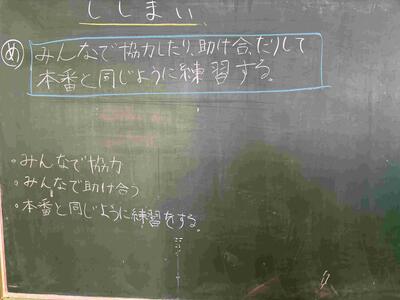 ししまい
め みんなで協力したり、助け合ったりして
本番と同じように練習する。
・みんなで協力
・みんなで助け合う
・本番と同じように練習をする。